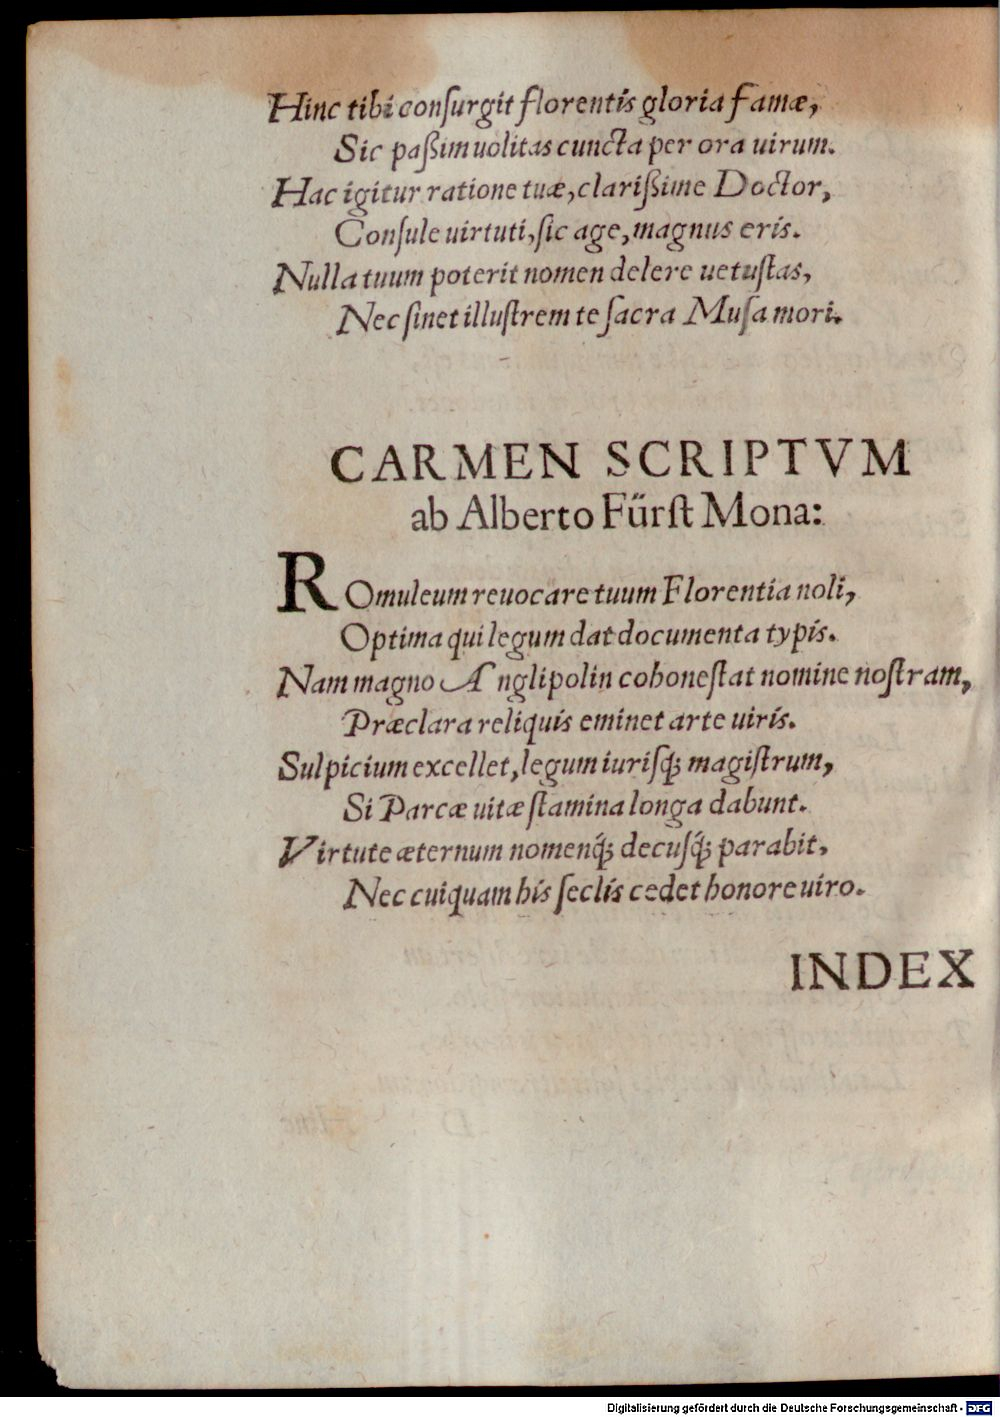 Hinc tibi conſurgit florentis gloria famæ,
Sic paßim uolitas cuncta per ora uirum.
Hac igitur ratione tuæ, clarißime Doctor,
Conſule uirtuti, ſic age, magnus eris.
Nulla tuum poterit nomen delere uetuſtas,
Nec ſinet illuſtrem te ſacra Muſa mori.
CARMEN SCRIPTVM
ab Alberto Fűrſt Mona:
ROmuleum reuocare tuum Florentia noli,
Optima qui legum dat documenta typis.
Nam magno Anglipolin cohoneſtat nomine noſtram,
Præclara reliquis eminet arte uiris.
Sulpicium excellet, legum iuriſq́; magiſtrum,
Si Parcæ uitæ ſtamina longa dabunt.
Virtute æternum nomenq́; decuſq́; parabit,
Nec cuiquam his ſeclis cedet honore uiro.
INDEX
Digitalisierung gefördert durch die Deutsche Forschungsgemeinschaft - DFG